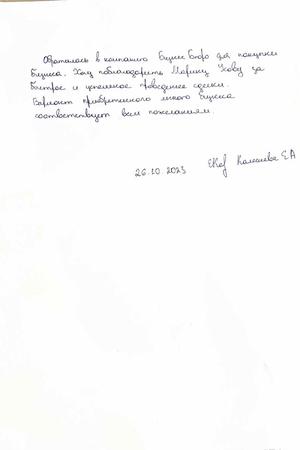 Обратилась в компанию Бизнес Бюро для покупки
бизнеса. Хочу поблагодарить Марину Усову за
быстрое и успешное проведение сделки.
Вариант приобретенного много бизнеса
соответствует всем пожеланиям.
26.10.2023 Е.А